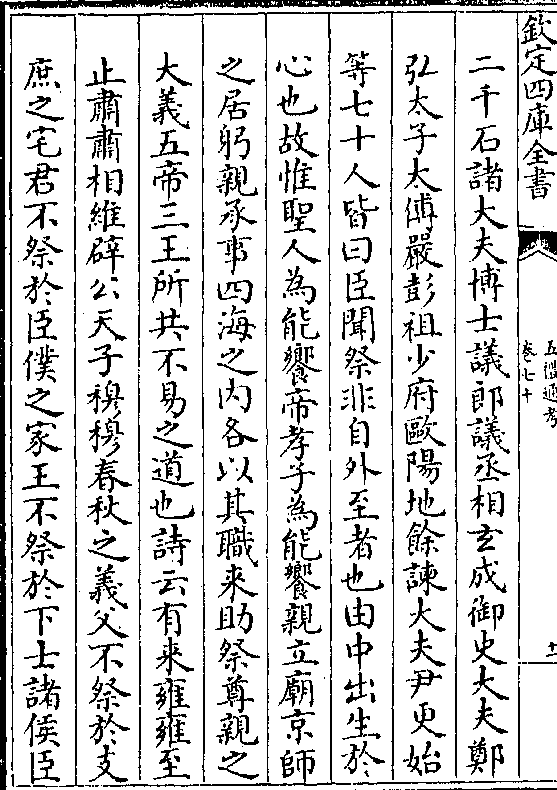 欽定四庫全書
五禮通考
卷七十
二千石諸大夫博士議郎議丞相玄成御史大夫鄭
弘太子太傅嚴彭祖少府歐陽地餘諫大夫尹更始
等七十人皆曰臣聞祭非自外至者也由中出生於
心也故惟聖人為能饗帝孝子為能饗親立廟京師
之居躬親承事四海之内各以其職来助祭尊親之
大義五帝三王所共不易之道也詩云有来雍雍至
止肅肅相維辟公天子穆穆春秋之義父不祭於支
庶之宅君不祭於臣僕之家王不祭於下士諸侯臣